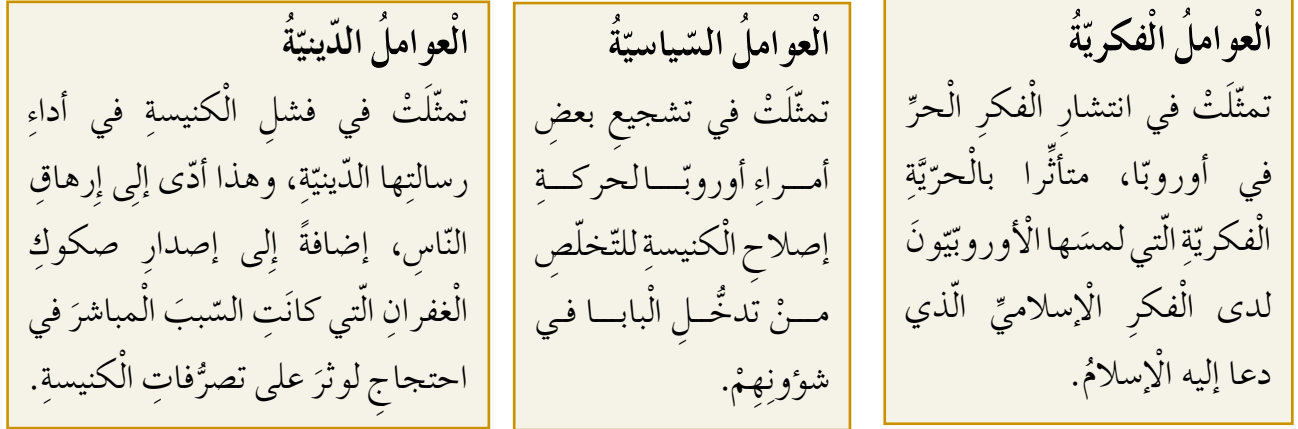 الْعواملُ الْفكريّةُ
تمثّلَتْ في انتشارِ الْفكرِ الْحرِّ
في أوروبّا، متأثِّرا بالْحرّيَّةِ
الْفكريّةِ الّتي لمسَها الْأوروبّيّونَ
لدى الْفكرِ الْإسلاميِّ الّذي
دعا إليه الْإسلامُ.
الْعواملُ السّياسيّةُ
تمثّلَتْ في تشجيعِ بعضِ
أمـراءِ أوروبّـا لحركـةِ
إصلاحِ الْكنيسةِ للتّخلّصِ
مـنْ تدخُّـلِ الْبابـا فـي
شؤونِهِمْ.
الْعواملُ الدّينيّةُ
تمثّلَتْ في فشلِ الْكنيسةِ في أداءِ
رسالتِها الدّينيّةِ، وهذا أدّى إلى إرهاقِ
النّاسِ، إضافةً إلى إصدارِ صكوكِ
الْغفرانِ الّتي كانَتِ السّببَ الْمباشرَ في
احتجاجِ لوثرَ على تصرُّفاتِ الْكنيسةِ.